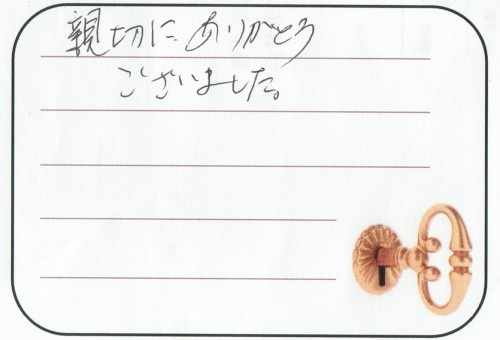 親切に ありがとう
ございました。